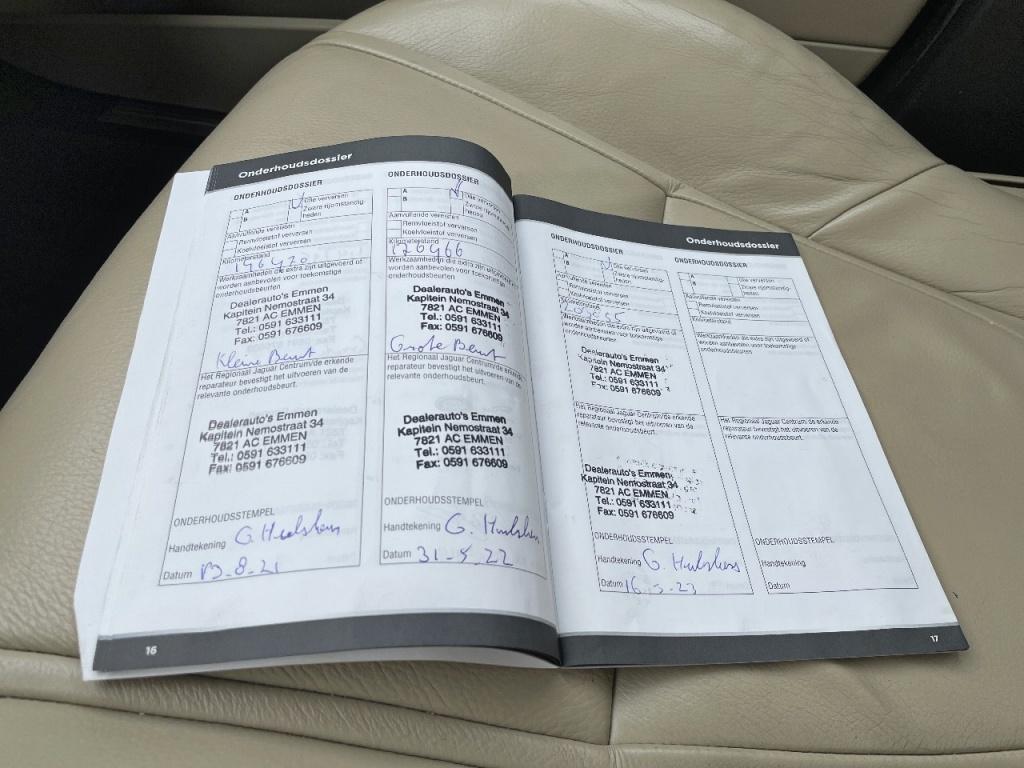 Onderhoudsdossier
ONDERHOUDSDOSSIER
A
B
Olie verversen
Zware rijomstandig-
heden
Aanvullende vereisten
Remvloeistof verversen
Koelvloeistof verversen
Kilometerstand
146420
Werkzaamheden die extra zijn uitgevoerd of
worden aanbevolen voor toekomstige
onderhoudsbeurten
Dealerauto's Emmen
Kapitein Nemostraat 34
7821 AC EMMEN
Tel.: 0591 633111
Fax: 0591 676609
Kleine Beurt
Het Regionaal Jaguar Centrum/de erkende
reparateur bevestigt het uitvoeren van de
relevante onderhoudsbeurt.
Dealerauto's Emmen
Kapitein Nemostraat 34
7821 AC EMMEN
Tel.: 0591 633111
Fax: 0591 676609
ONDERHOUDSSTEMPEL
Handtekening G. Hulshers
Datum 13-8-21
ONDERHOUDSDOSSIER
A
B
Olie verversen
Zware rijomstandig-
heden
Aanvullende vereisten
Remvloeistof verversen
Koelvloeistof verversen
Kilometerstand
176466
Werkzaamheden die extra zijn uitgevoerd of
worden aanbevolen voor toekomstige
onderhoudsbeurten
Dealerauto's Emmen
Kapitein Nemostraat 34
7821 AC EMMEN
Tel.: 0591 633111
Fax: 0591 676609
Grote Beurt
Het Regionaal Jaguar Centrum/de erkende
reparateur bevestigt het uitvoeren van de
relevante onderhoudsbeurt.
Dealerauto's Emmen
Kapitein Nemostraat 34
7821 AC EMMEN
Tel.: 0591 633111
Fax: 0591 676609
ONDERHOUDSSTEMPEL
Handtekening G. Hulshers
Datum 31-5-22
16
Onderhoudsdossier
ONDERHOUDSDOSSIER
A
B
Olie verversen
Zware rijomstandig-
heden
Aanvullende vereisten
Remvloeistof verversen
Koelvloeistof verversen
Kilometerstand
Werkzaamheden die extra zijn uitgevoerd of
worden aanbevolen voor toekomstige
onderhoudsbeurten
Dealerauto's Emmen
Kapitein Nemostraat 34
7821 AC EMMEN
Tel.: 0591 633111
Fax: 0591 676609
Het Regionaal Jaguar Centrum/de erkende
reparateur bevestigt het uitvoeren van de
relevante onderhoudsbeurt.
Dealerauto's Emmen
Kapitein Nemostraat 34
7821 AC EMMEN
Tel.: 0591 633111
Fax: 0591 676609
ONDERHOUDSSTEMPEL
Handtekening G. Hulshers
Datum 16-5-23
ONDERHOUDSDOSSIER
A
B
Olie verversen
Zware rijomstandig-
heden
Aanvullende vereisten
Remvloeistof verversen
Koelvloeistof verversen
Kilometerstand
Werkzaamheden die extra zijn uitgevoerd of
worden aanbevolen voor toekomstige
onderhoudsbeurten
Het Regionaal Jaguar Centrum/de erkende
reparateur bevestigt het uitvoeren van de
relevante onderhoudsbeurt.
ONDERHOUDSSTEMPEL
Handtekening
Datum
17